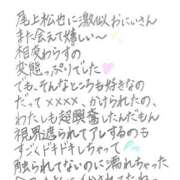 尾上松也に激似おにいさん
また会えて嬉しい〜
相変わらずの
変態っぷりでした
でも、そんなところも好きなの
だって××××、かけられたの、
わたしも超興奮したんだもん
視界遮られてアレするのも
すっごくドキドキしちゃって
触られてないのに濡れちゃった